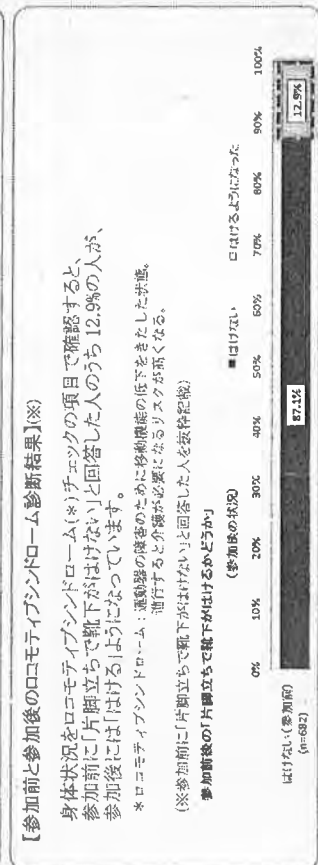 【参加前と参加後のロコモティブシンドローム診断結果】(※)
身体状況をロコモティブシンドローム(*)チェックの項目で確認すると、
参加前に「片脚立ちで靴下がはけない」と回答した人のうち 12.9%の人が、
参加後には「はける」ようになっています。
*ロコモティブシンドローム:運動器の障害のために移動機能の低下をきたした状態。
進行すると介護が必要になるリスクが高くなる。
(※参加前に「片脚立ちで靴下がはけない」と回答した人を抜粋記載)
参加前後の「片脚立ちで靴下がはけるかどうか」
(参加後の状況)
■はけない □はけるようになった
0% 10% 20% 30% 40% 50% 60% 70% 80% 90% 100%
はけない(参加前)
(n=682)
87.1% 12.9%